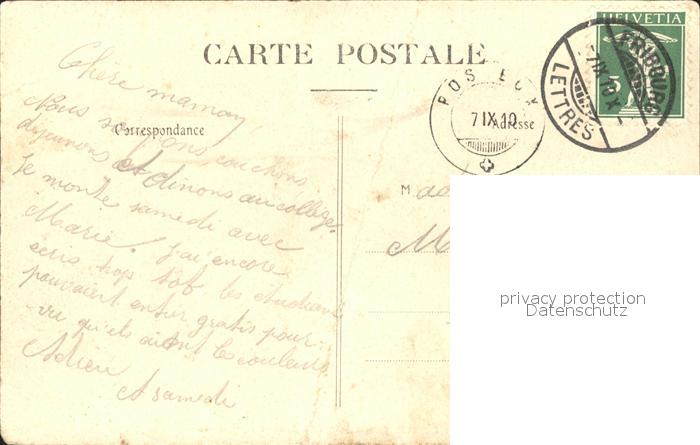 CARTE POSTALE
HELVETIA
5
FRIBOURG
7 IX 10
LETTRES
7 IX 10
Correspondance
Adresse
Chère maman
Nous couchons
déjeunons et dinons au collège.
Je monte samedi avec
Marie. J'ai encore
écris trop tôt les étudiants
pouvaient entrer gratis pour-
vu qu'ils aient les couleurs.
Adieu
A samedi
M
privacy protection
Datenschutz